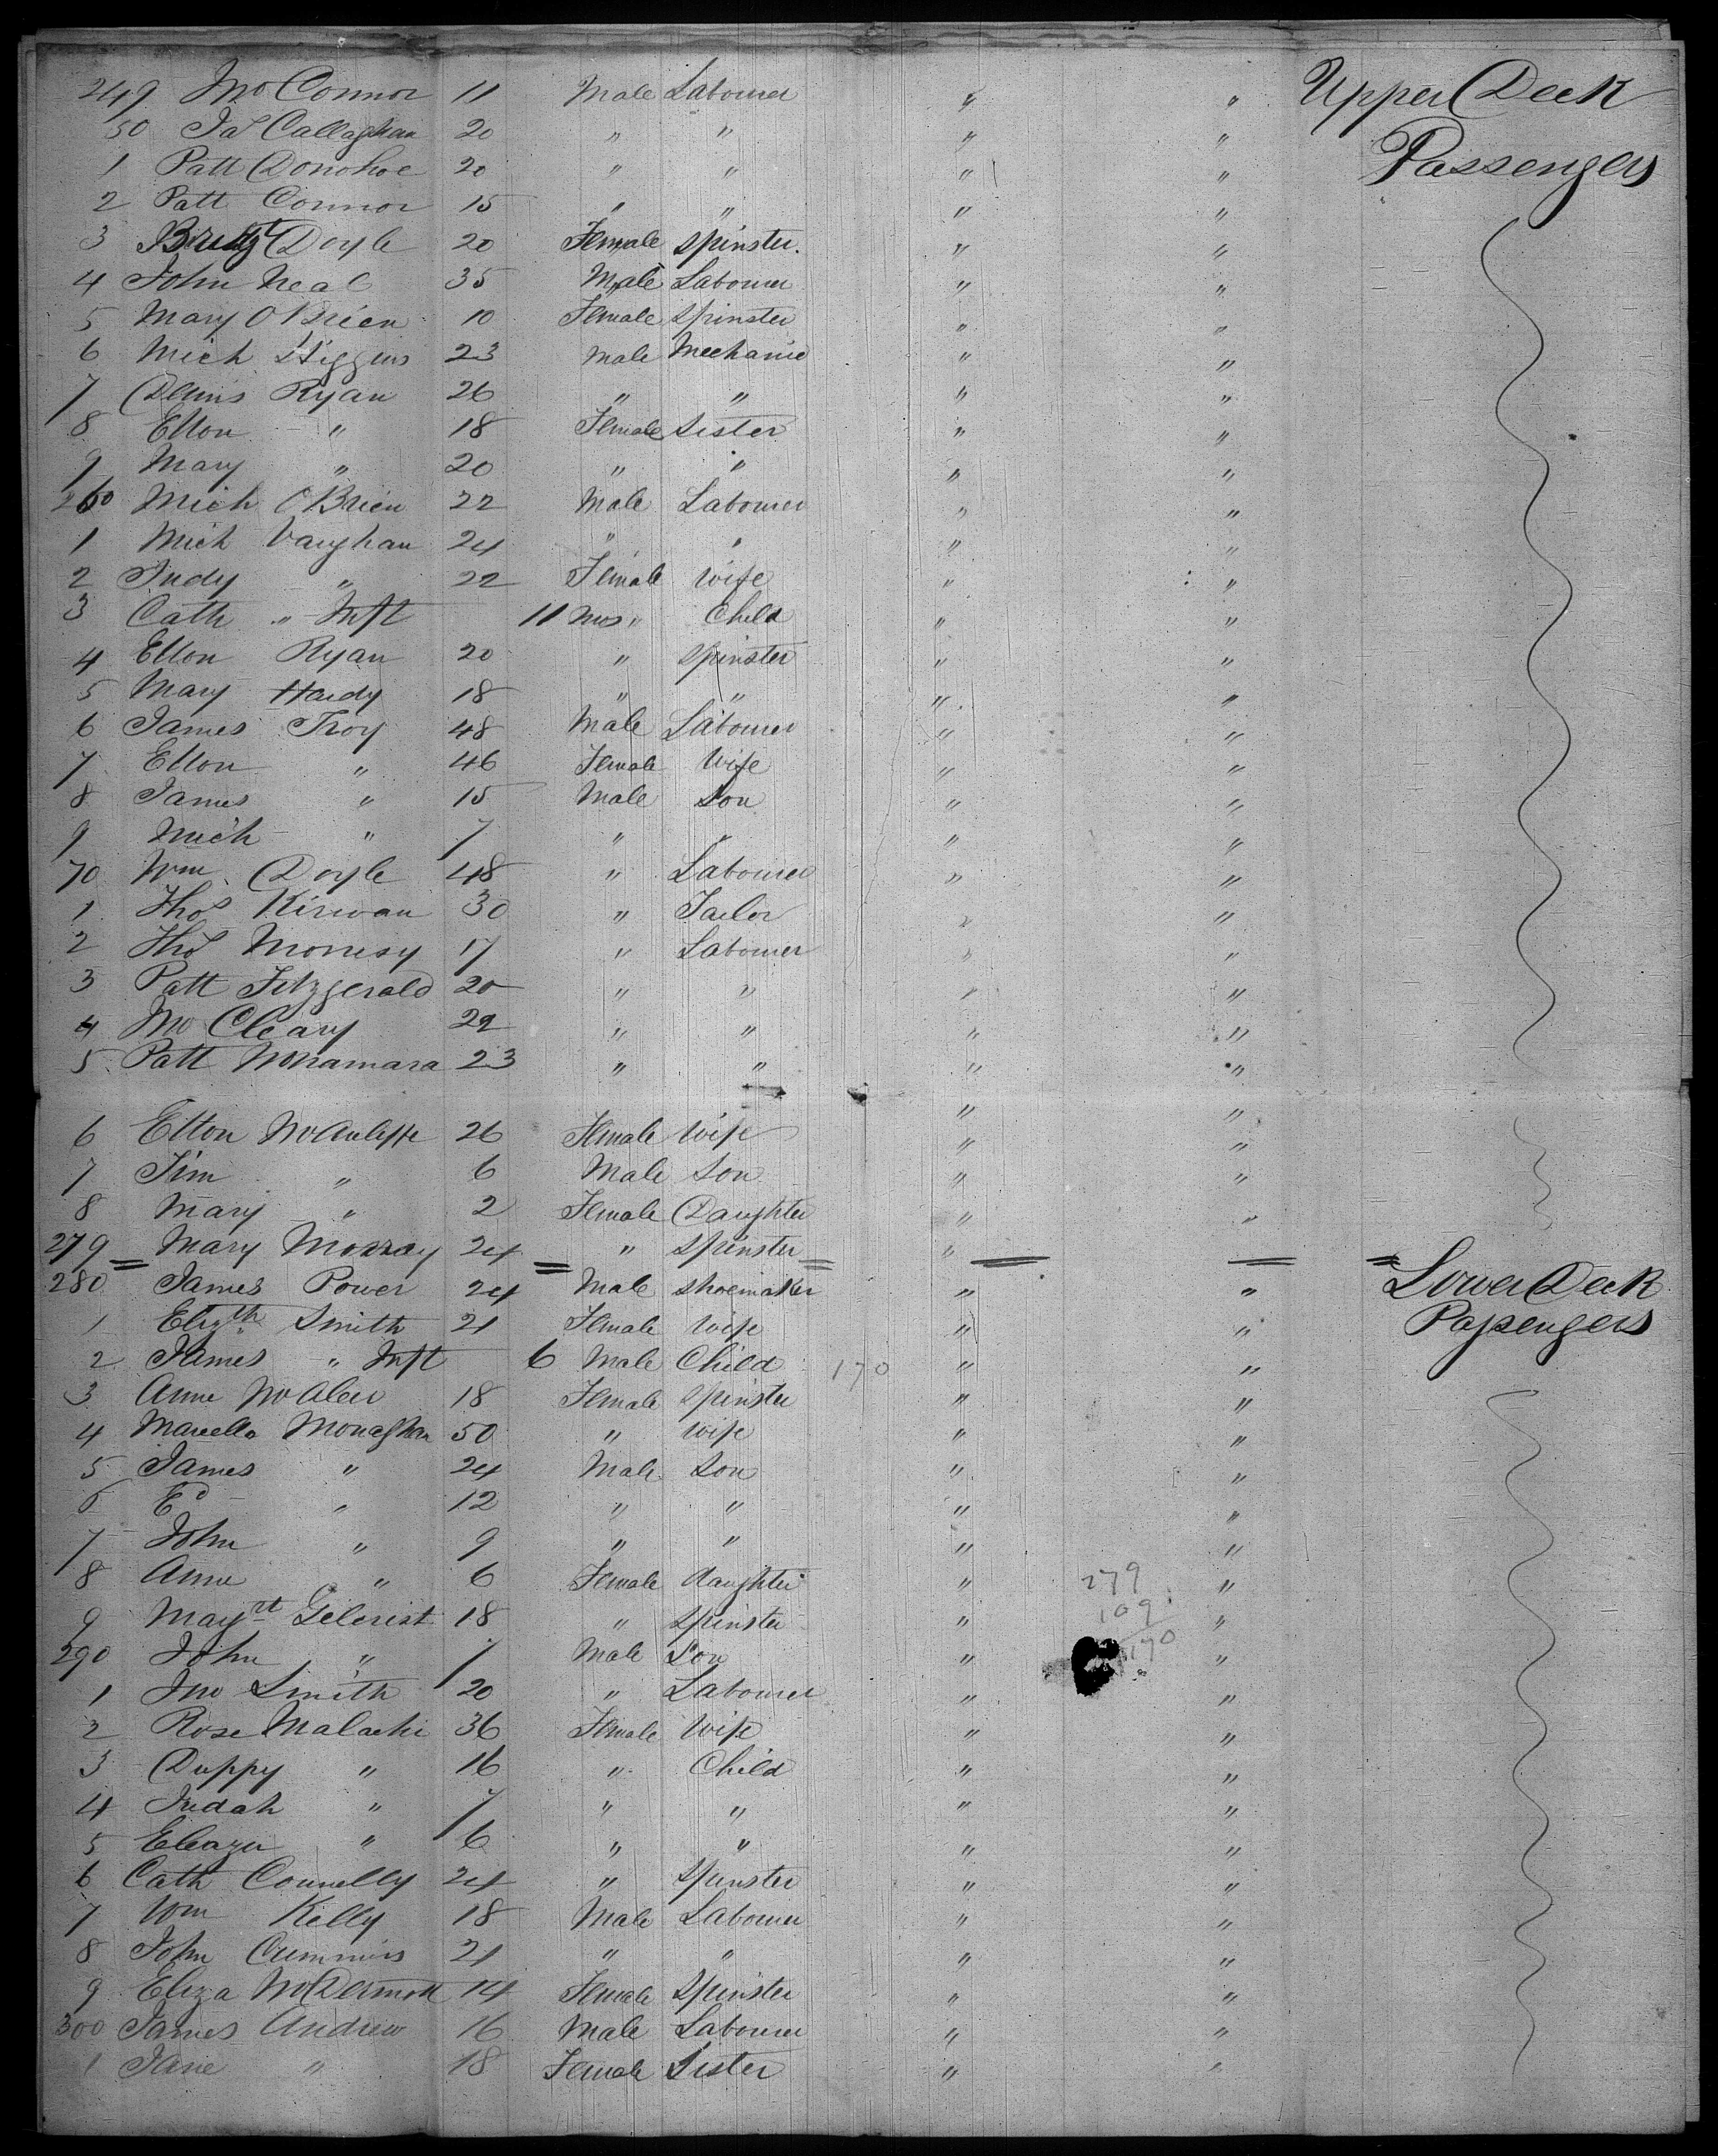 249 Jno Connor 11 Male Labourer " " Upper Deck
50 Jas Callaghan 20 " " " "
1 Patt Donohoe 20 " " " " Passengers
2 Patt Connor 15 " " " "
3 Bridgt Doyle 20 Female Spinster. " "
4 John Neal 35 Male Labourer " "
5 Mary O Brien 10 Female Spinster " "
6 Mich Higgins 23 Male Mechanic " "
7 Dennis Ryan 26 " " " "
8 Ellon " 18 Female Sister " "
9 Mary " 20 " " " "
260 Mich O Brien 22 Male Labourer " "
1 Mich Vaughan 24 " " " "
2 Judy " 22 Female Wife " "
3 Cath " Inft 11 Mos " Child " "
4 Ellon Ryan 20 " Spinster " "
5 Mary Hardy 18 " " " "
6 James Troy 48 Male Labourer " "
7 Ellon " 46 Female Wife " "
8 James " 15 Male Son " "
9 Mich " 7 " " " "
70 Wm Doyle 48 " Labourer " "
1 Thos Kirwan 30 " Tailor " "
2 Thos Morrisy 17 " Labourer " "
3 Patt Fitzgerald 20 " " " "
4 Jno Cleary 22 " " " "
5 Patt McNamara 23 " " " "
" "
6 Ellon McAuliffe 26 Female Wife " "
7 Jim " 6 Male Son " "
8 Mary " 2 Female Daughter " "
279 Mary Morray 24 " Spinster "
280 James Power 24 Male Shoemaker " " Lower Deck
1 Elizth Smith 21 Female Wife " " Passengers
2 James " Inft 6 Male Child 170 " "
3 Anne McAleer 18 Female Spinster " "
4 Marcella Monaghan 50 " Wife " "
5 James " 24 Male Son " "
6 Ed " 12 " " " "
7 John " 9 " " " "
8 Anne " 6 Female daughter " 279 "
9 Margrt Gilcrist 18 " Spinster " 109 "
290 John " 7 Male Son " 170 "
1 Jno Smith 20 " Labourer " "
2 Rose Malachi 36 Female Wife " "
3 Duppy " 16 " Child " "
4 Judah " 7 " " " "
5 Eleazer " 6 " " " "
6 Cath Connelly 24 " Spinster " "
7 Wm Kelly 18 Male Labourer " "
8 John Cummins 21 " " " "
9 Eliza McDermott 14 Female Spinster " "
300 James Andrew 16 Male Labourer " "
1 Jane " 18 Female Sister " "